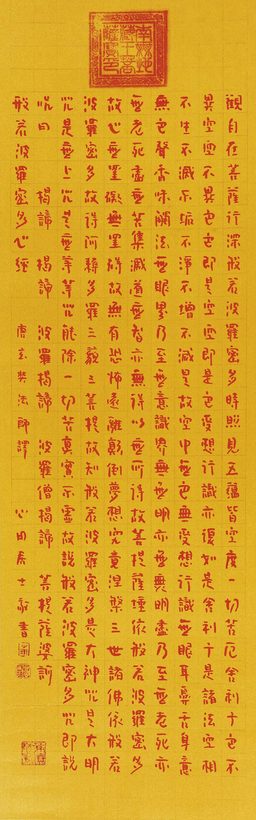 觀自在菩薩行深般若波羅蜜多時照見五蘊皆空度一切苦厄舍利子色不
異空空不異色色即是空空即是色受想行識亦復如是舍利子是諸法空相
不生不滅不垢不淨不增不減是故空中無色無受想行識無眼耳鼻舌身意
無色聲香味觸法無眼界乃至無意識界無無明亦無無明盡乃至無老死亦
無老死盡無苦集滅道無智亦無得以無所得故菩提薩埵依般若波羅蜜多
故心無罣礙無罣礙故無有恐怖遠離顛倒夢想究竟涅槃三世諸佛依般若
波羅蜜多故得阿耨多羅三藐三菩提故知般若波羅蜜多是大神咒是大明
咒是無上咒是無等等咒能除一切苦真實不虛故說般若波羅蜜多咒即說
咒曰 揭諦 揭諦 波羅揭諦 波羅僧揭諦 菩提薩婆訶
般若波羅蜜多心經 唐玄奘法師譯 心田居士敬書